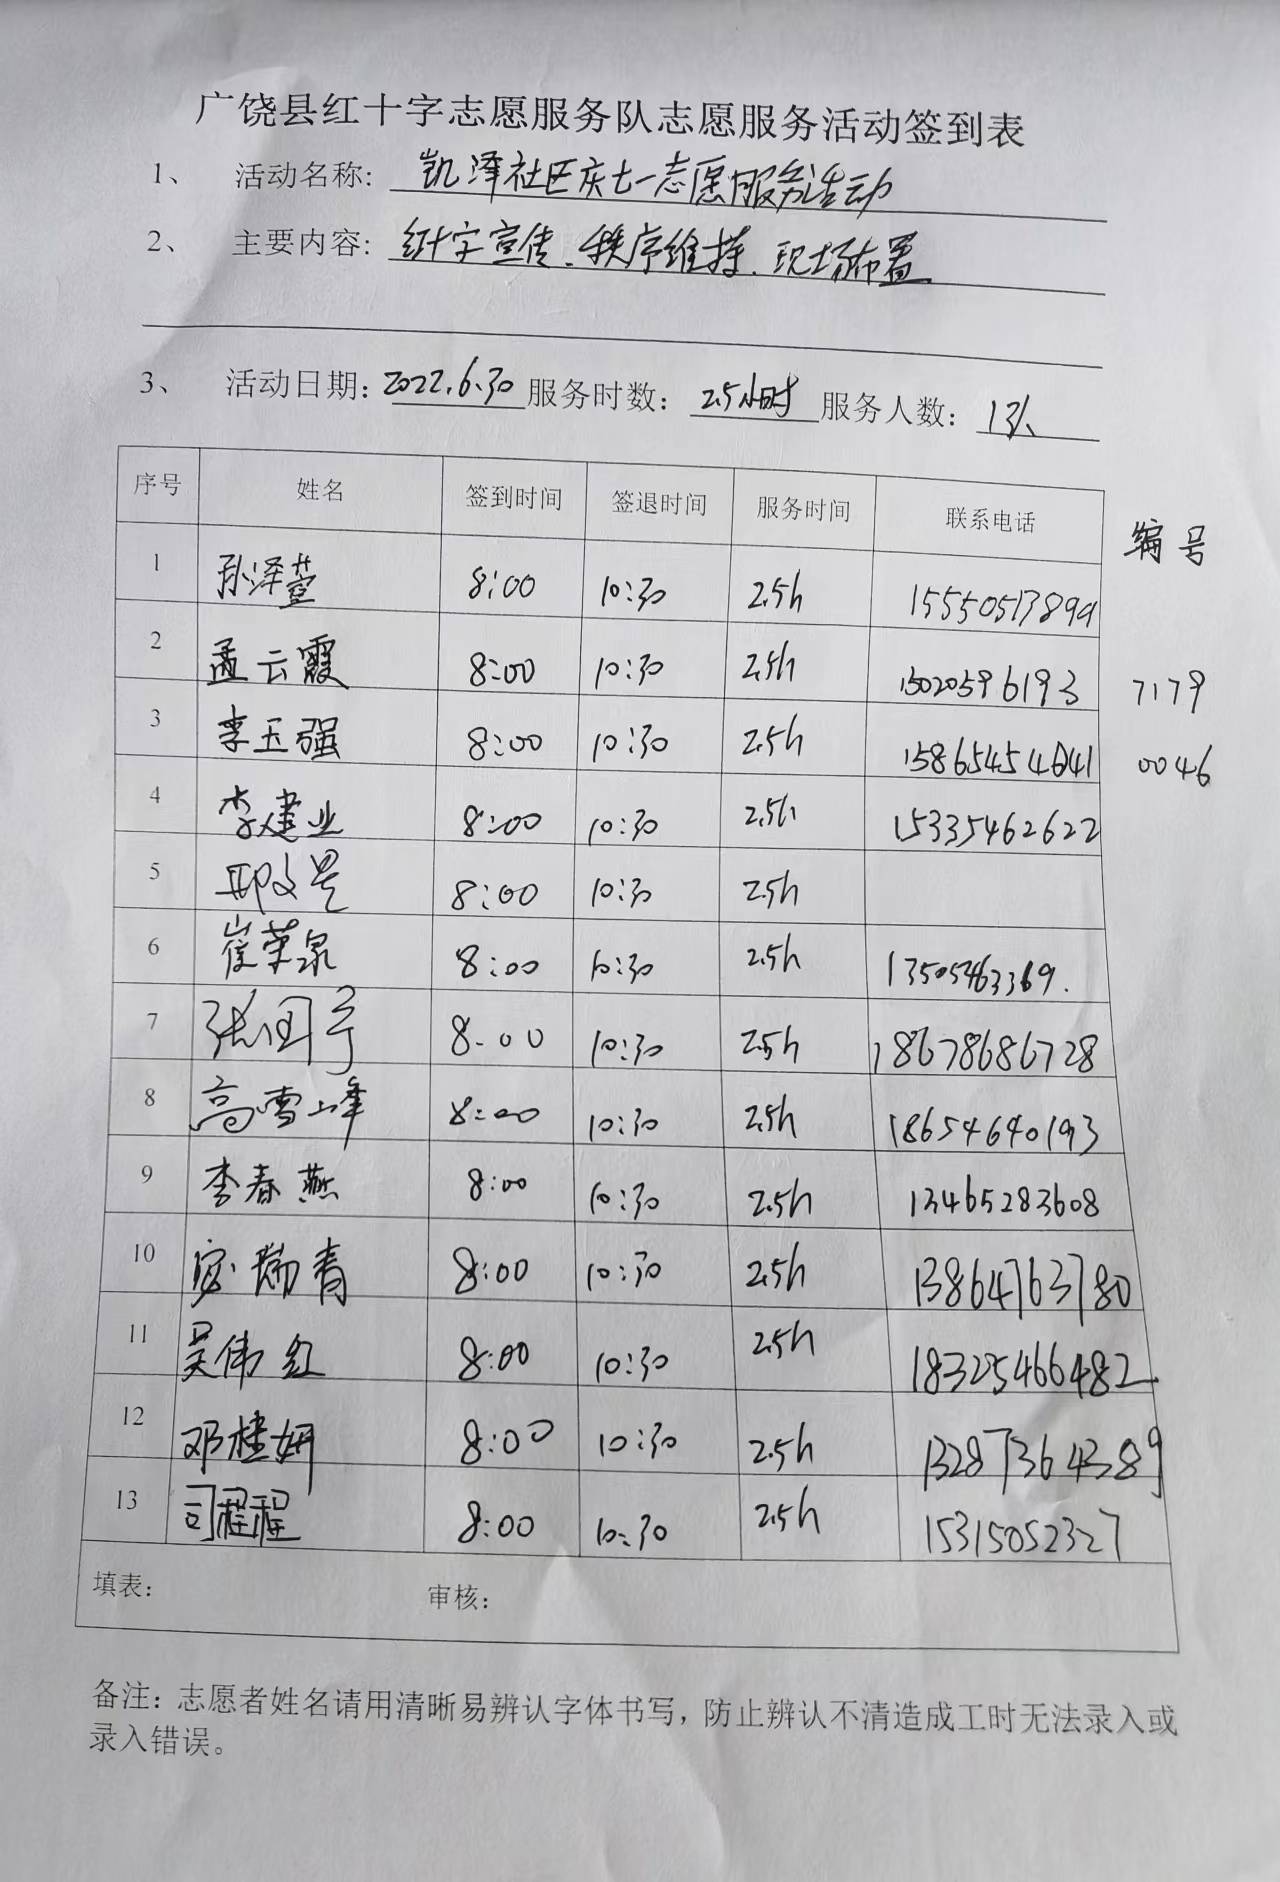 广饶县红十字志愿服务队志愿服务活动签到表
1、 活动名称: 凯泽社区庆七一志愿服务活动
2、 主要内容: 红十字宣传、秩序维持、现场布置
3、 活动日期: 2022.6.30 服务时数: 2.5小时 服务人数: 13人
序号 姓名 签到时间 签退时间 服务时间 联系电话 编号
1 孙泽萱 8:00 10:30 2.5h 15550517899
2 孟云霞 8:00 10:30 2.5h 15020596193 7179
3 李玉强 8:00 10:30 2.5h 15865454641 0046
4 李建业 8:00 10:30 2.5h 15335462622
5 8:00 10:30 2.5h
6 崔荣泉 8:00 10:30 2.5h 13505463369.
7 张国宁 8:00 10:30 2.5h 18678686728
8 高雪峰 8:00 10:30 2.5h 18654640193
9 李春燕 8:00 10:30 2.5h 13465283608
10 瑞青 8:00 10:30 2.5h 13864763780
11 吴伟红 8:00 10:30 2.5h 18325466482
12 邓桂妍 8:00 10:30 2.5h 13287364389
13 司程程 8:00 10:30 2.5h 15315052327
填表: 审核:
备注: 志愿者姓名请用清晰易辨认字体书写，防止辨认不清造成工时无法录入或
录入错误。